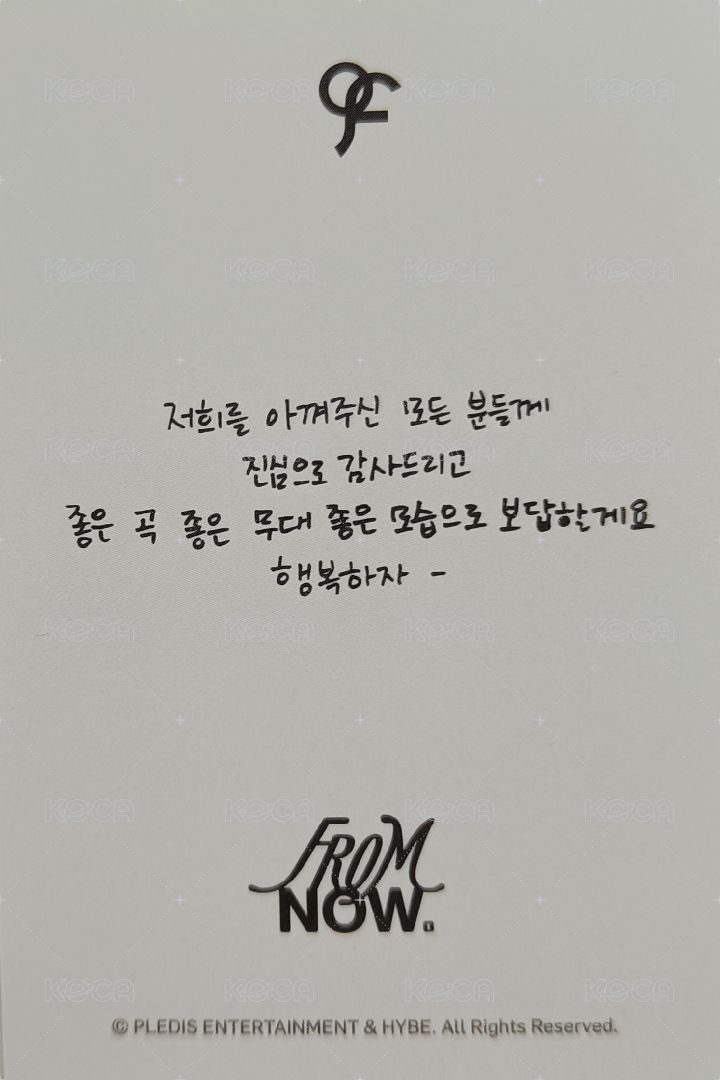 저희를 아껴주신 모든 분들께
진심으로 감사드리고
좋은 곡 좋은 무대 좋은 모습으로 보답할게요
행복하자 -
FROM
NOW.
© PLEDIS ENTERTAINMENT & HYBE. All Rights Reserved.
KOCA